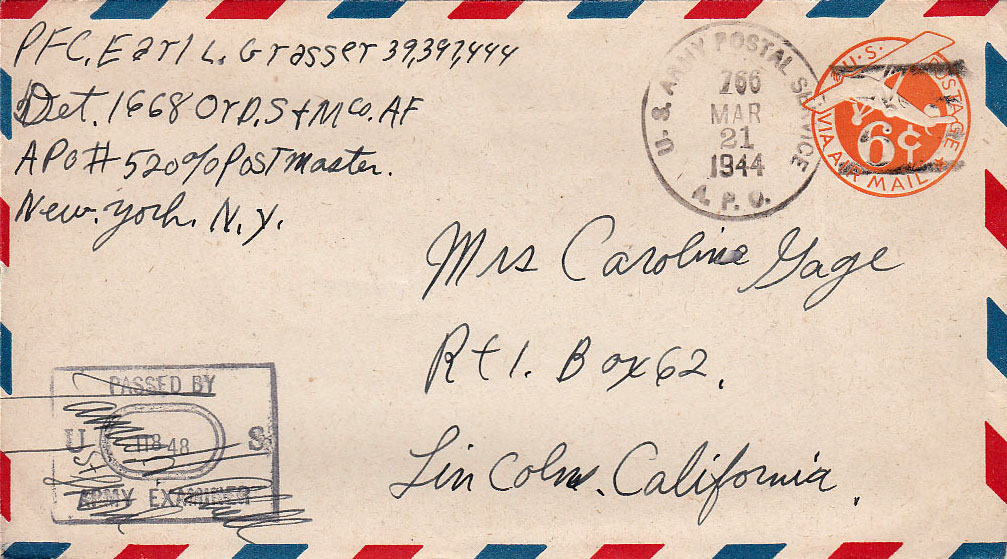 PFC. Earl L. Grasser 39,397,444
Det. 1668 Ord. S & M Co. AF
APO # 520 % Post Master.
New. York. N.Y.
U.S. ARMY POSTAL SERVICE
766
MAR
21
1944
A.P.O.
U.S. POSTAGE
6¢
VIA AIR MAIL
Mrs Caroline Gage
Rt 1. Box 62.
Lincoln. California.
PASSED BY
U S
48
ARMY EXAMINER